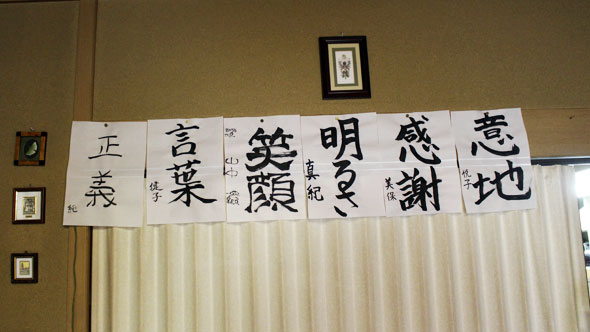 意地
悦子
感謝
美保
明るさ
真紀
笑顔
言葉
健子
正義
純